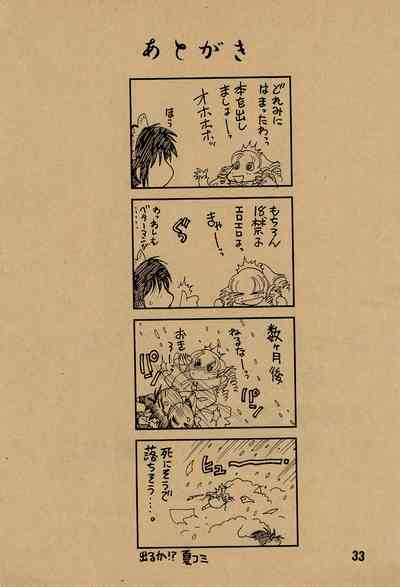 あとがき
どれみに
はまったわっ
本を出し
ましょー
オホホホッ
ほぅ
もちろん
18禁よ
エロエロよ。
きゃーっ。
ぐっ
数ヶ月後
ねるなーっ
おきろー
パン
パン
ヒュー
死にそうで
落ちそう・・・・。
出るか!? 夏コミ
33